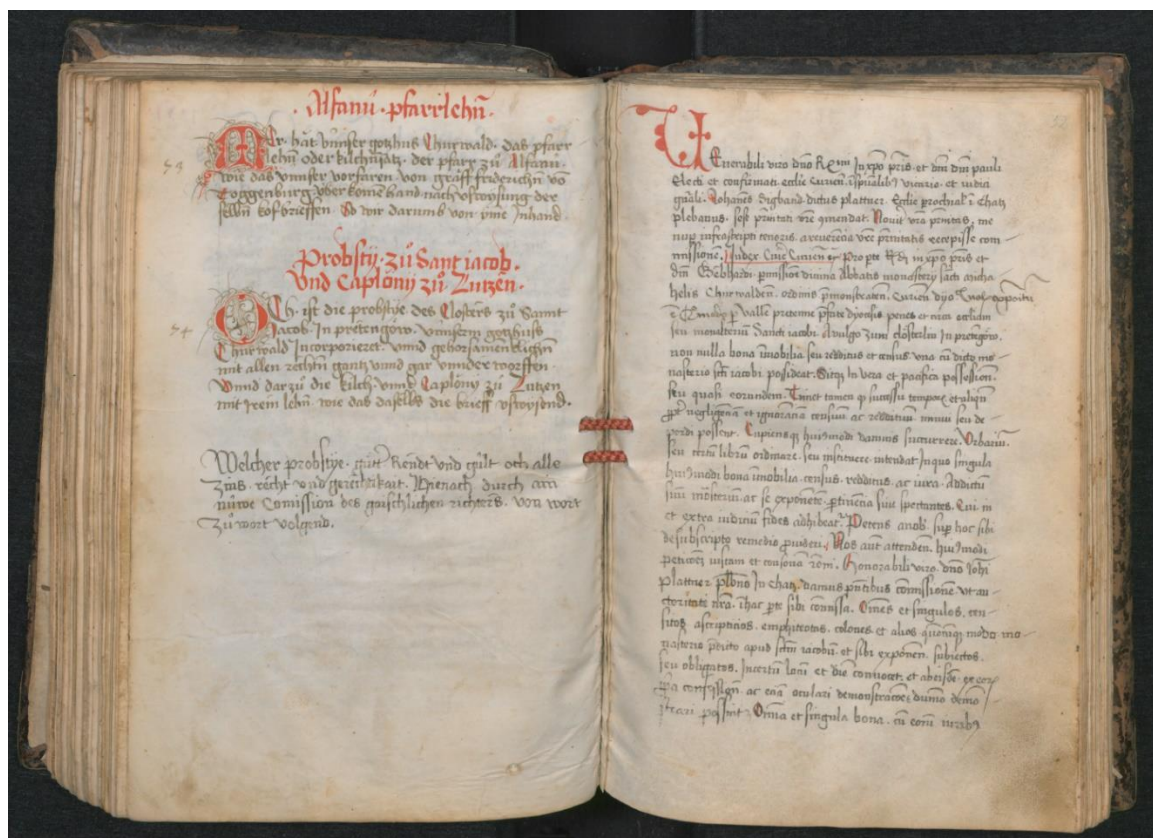 · Alfanu · pfarrlehn ·
53
Er · hat unser gotzhus Churwald · das pfarr
lehn oder kilchnsatz · der pfarr zů Alfanu ·
wie das unnser vorfaren von graff friderichn vo
Toggenburg uber komē hand · nach uswysung der
selbn kofbrieffen · So wir darumb von ime Inhand
Probstÿ · zů Sant Jacob ·
Vnd Caplony zů · Zutzen ·
54
Och · ist die probstye · des Closters zů Sannt
Jacob · In pretengöw · unnserm gotzhuss
Churwald Incorporieret · unnd gehorsamenklichn
mit allen rechtn gantz unnd gar unnder worffen ·
Unnd darzů die kilch · unnd Caplony zů Zutzen
mit irem lehn · wie das dasselb die brieff uswysend ·
Welcher probstye · gůtt Rendt und gůlt och alle
zins · recht und gerechtikait · Hienach durch ain
nuwe Comission des gaischlichen richters · von wort
zů wort volgend ·
52
Venerabili viro dno in xpo pris et dni dni pauli
Electi et confirmati ecclie Curien ispualibz vicario · et iudici
gnali · Johanes Sigband dictus plattner · Ecclie prochial i Chatz
plebanus · sese pntitati vre comendat · Novit vra pntitas · me
nup infrascripti tenoris · a reverecia vre pntitatis recepisse com-
missione · Judex Curie Curien Pro pte Rdi in xpo pris et
dni Gebhardi · pmissione divina Abbatis monastery sancti micha-
helis Churwalden · ordinis pmonstraten · Curien dyo
valle pretenne pfate dyocesis penes et circa eccliam
seu monasterium Sancti iacobi · A vulgo zum closterlin In pretengow ·
non nulla bona imobilia seu redditus et census · una cu dicto mo-
nasterio scti iacobi possideat · Sitqz in vera et pacifica possession ·
seu quasi eorundem · Timet tamen qz successu temporis et aliqun
ppt negligenciam et ignoranciam censuum ac reddituum minui seu de-
perdi possent · Cupiensqz huiusmodi damnis succurrere · Urbarium
seu certum librum ordinare · seu instituere · intendat In quo singula
huiusmodi bona imobilia · census · redditus · ac iura · Addictum
suum mosterium · ac se exponete · ptinencia sive spectantes · Cui in
et extra iudicium fides adhibeat · Petens a nob · sup hoc sibi
de subscripto remedio pvideri · Nos aut attenden · huiusmodi
peticoem iustam et consonam roni · Honorabili viro · dno Johi
Plattner plbno In Chatz damus pntibus comissione · ut au-
ctoritate nra · ihac pte sibi comissa · Omes et singulos · cen-
sitos · ascripticios · emphiteotas · colones et alios quomcqz modo mo-
nasterio pdicto apud sctm iacobum · et sibi exponen · subiectos ·
seu obligatos · In certum locum et diem convocet · et ab eisdem
ppa confession · ac eciam oculari demonstracoe dumo demo-
strari possint · Omia et singula bona · cu eorum iuribz